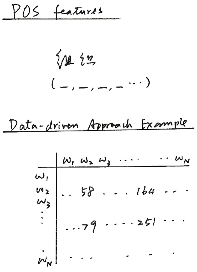 POS features
(_, _, _, _ ...)
Data-driven Approach Example
w₁ w₂ w₃ ..... ... w_N
w₁
w₂ .. 58 .... 164 ....
w₃
⋮ ...79 ....251 ....
w_N . . . .